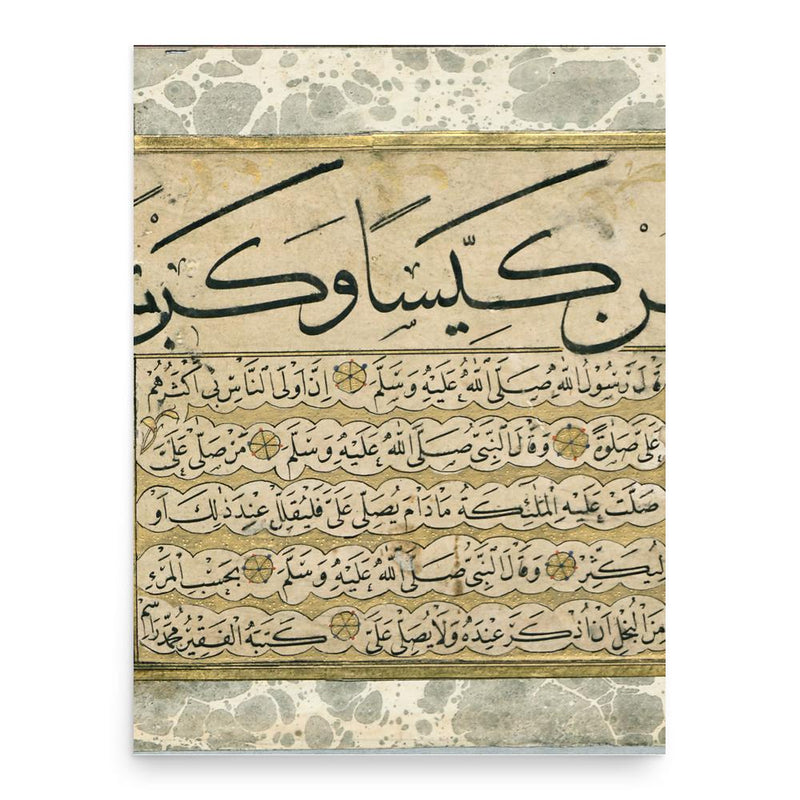 كَيِّسًا
قَالَ رَسُولُ اللّٰهِ صَلَّى اللّٰهُ عَلَيْهِ وَسَلَّمَ اِنَّ اَوْلَى النَّاسِ بِى اَكْثَرُهُمْ
عَلَىَّ صَلٰوةً وَقَالَ النَّبِىُّ صَلَّى اللّٰهُ عَلَيْهِ وَسَلَّمَ مَنْ صَلّٰى عَلَىَّ
صَلَّتْ عَلَيْهِ الْمَلٰئِكَةُ مَادَامَ يُصَلِّى عَلَىَّ فَلْيُقَلِّلْ عِنْدَ ذٰلِكَ اَوْ
لِيُكَثِّرْ وَقَالَ النَّبِىُّ صَلَّى اللّٰهُ عَلَيْهِ وَسَلَّمَ بِحَسْبِ الْمَرْءِ
مِنَ الْبُخْلِ اَنْ اُذْكَرَ عِنْدَهُ وَلَا يُصَلِّى عَلَىَّ كَتَبَهُ الْفَقِيرُ مُحَمَّدْ رَاسِمْ